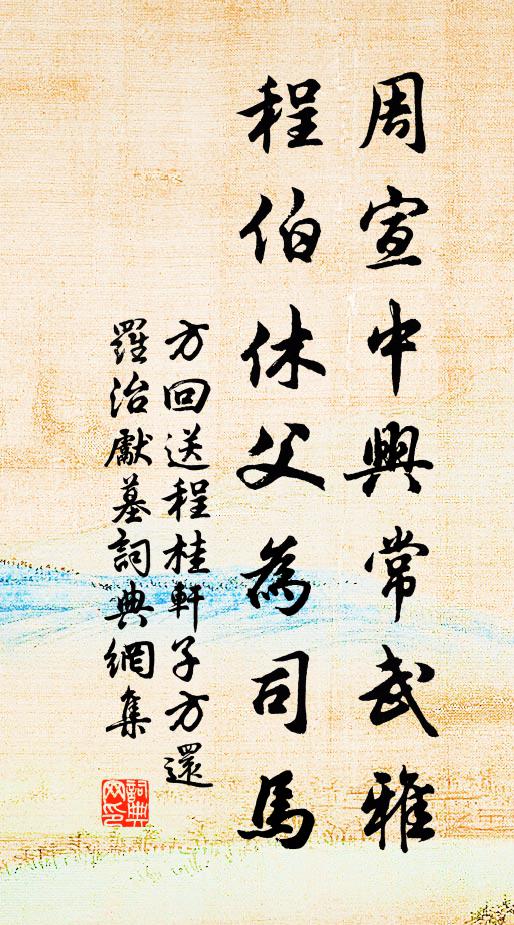 周宣中興常武雅
程伯休父為司馬
方回送程桂軒子方還
羅治獻墓詞典網集
詞典网印